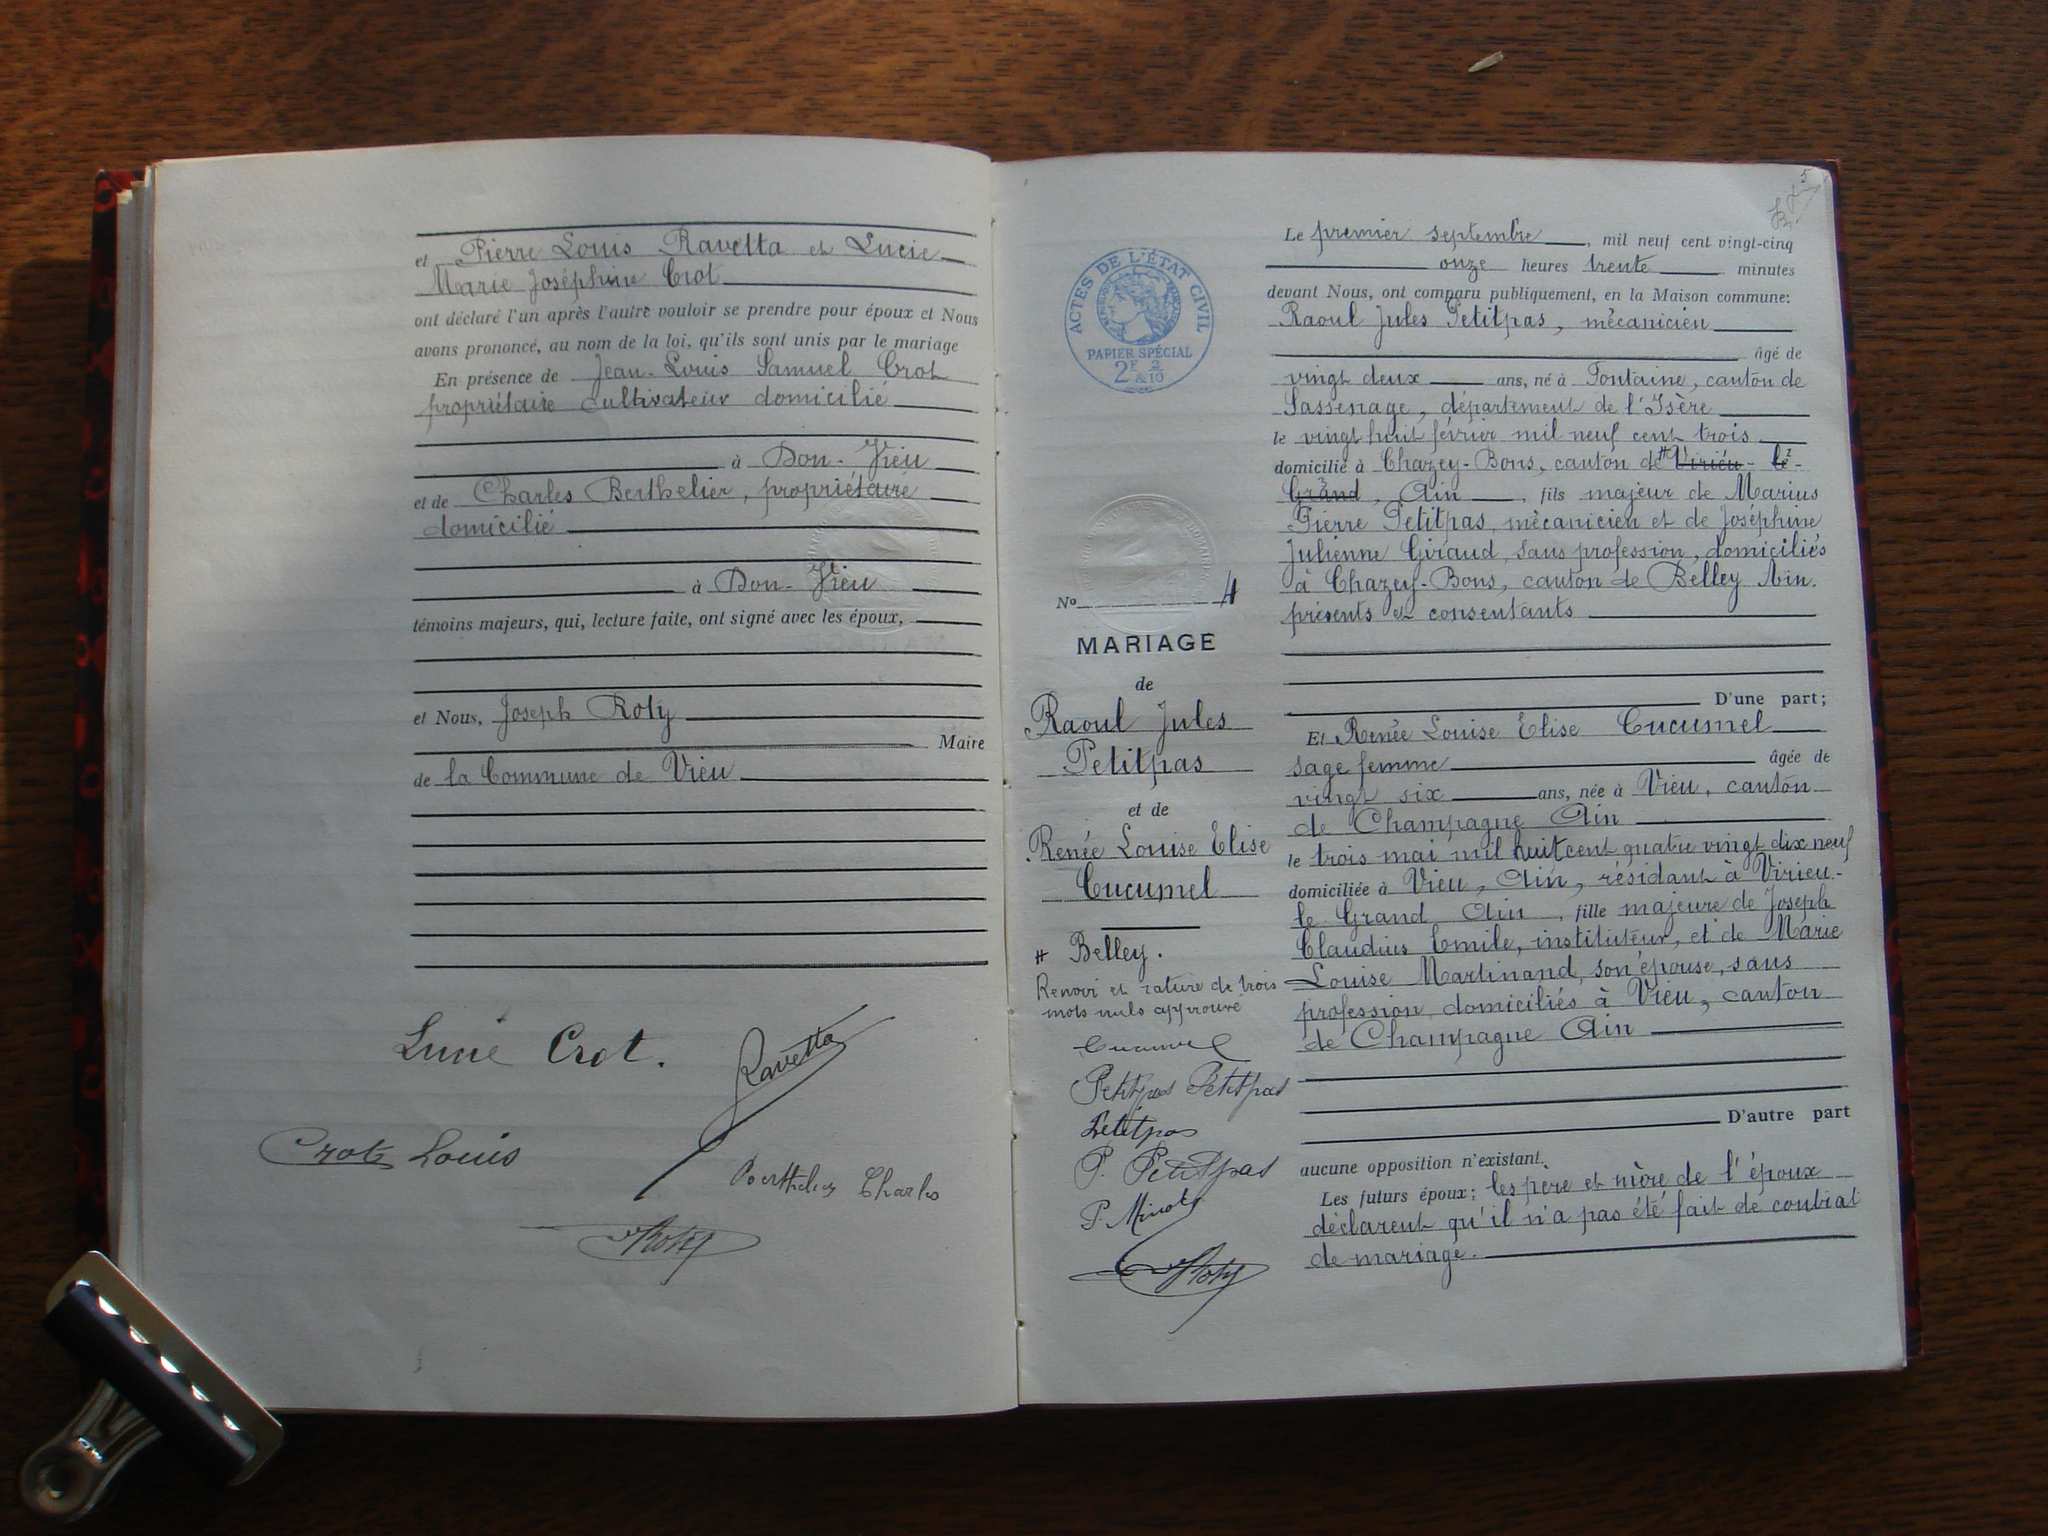 et Pierre Louis Ravetta et Lucie
Marie Joséphine Crot
ont déclaré l'un après l'autre vouloir se prendre pour époux et Nous
avons prononcé, au nom de la loi, qu'ils sont unis par le mariage
En présence de Jean-Louis Samuel Crot
propriétaire cultivateur domicilié
à Don-Vieu
et de Charles Berthelier, propriétaire
domicilié
à Don-Vieu
témoins majeurs, qui, lecture faite, ont signé avec les époux,
et Nous, Joseph Roty
Maire
de la Commune de Vieu
Lucie Crot.
Ravetta
Crot Louis
Berthelier Charles
Roty
5
ACTES DE L'ÉTAT CIVIL
PAPIER SPÉCIAL
2F 2/10
&
No 4
MARIAGE
de
Raoul Jules
Petitpas
et de
Renée Louise Elise
Cucumel
# Belley.
Renvoi et rature de trois
mots nuls approuvé
Cucumel
Petitpas Petitpas
Petitpas
P. Petitpas
P. Minot
Roty
Le premier septembre, mil neuf cent vingt-cinq
onze heures trente minutes
devant Nous, ont comparu publiquement, en la Maison commune:
Raoul Jules Petitpas, mécanicien
âgé de
vingt deux ans, né à Fontaine, canton de
Sassenage, département de l'Isère
le vingt huit février mil neuf cent trois
domicilié à Chazey-Bons, canton de # Virieu-le-
Grand, Ain, fils majeur de Marius
Pierre Petitpas, mécanicien et de Joséphine
Julienne Giraud, sans profession, domiciliés
à Chazey-Bons, canton de Belley Ain.
présents et consentants
D'une part;
Et Renée Louise Elise Cucumel
sage femme âgée de
vingt six ans, née à Vieu, canton
de Champagne Ain
le trois mai mil huit cent quatre vingt dix neuf
domiciliée à Vieu, Ain, résidant à Virieu-
le Grand Ain, fille majeure de Joseph
Claudius Emile, instituteur, et de Marie
Louise Martinand, son épouse, sans
profession, domiciliés à Vieu, canton
de Champagne Ain
D'autre part
aucune opposition n'existant.
Les futurs époux; les père et mère de l'époux
déclarent qu'il n'a pas été fait de contrat
de mariage.